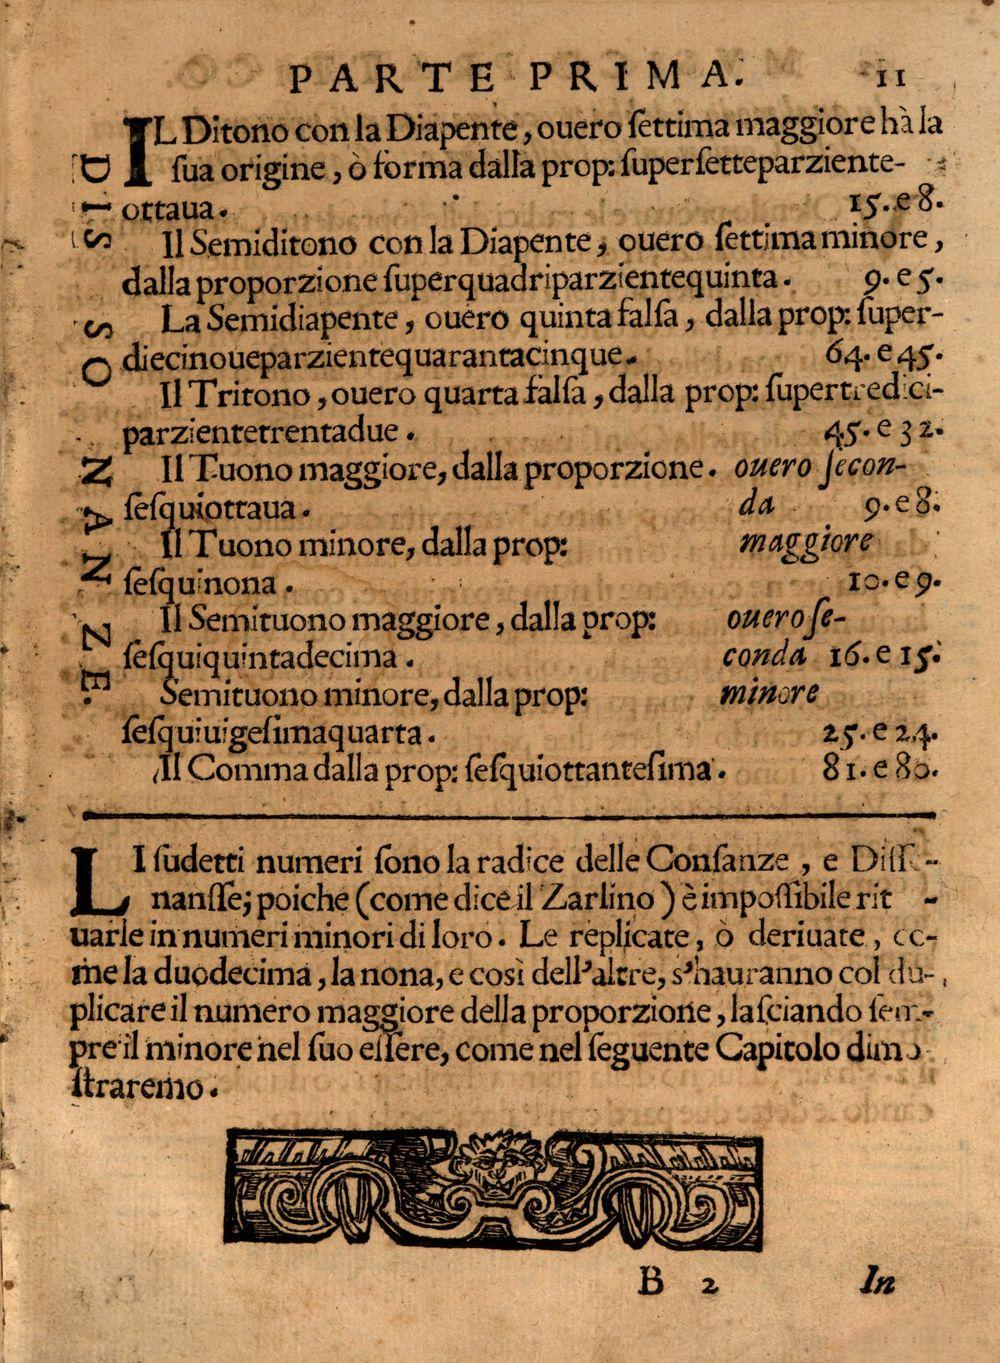 PARTE PRIMA. 11
DISSONANZE.
IL Ditono con la Diapente, ouero ſettima maggiore hà la
ſua origine, ò forma dalla prop: ſuperſetteparziente-
ottaua. 15. e 8.
Il Semiditono con la Diapente, ouero ſettima minore,
dalla proporzione ſuperquadriparzientequinta. 9. e 5.
La Semidiapente, ouero quinta falſa, dalla prop: ſuper-
diecinoueparzientequarantacinque. 64. e 45.
Il Tritono, ouero quarta falſa, dalla prop: ſupertredici-
parzientetrentadue. 45. e 32.
Il Tuono maggiore, dalla proporzione. ouero ſecon-
ſeſquiottaua. da 9. e 8.
Il Tuono minore, dalla prop: maggiore
ſeſquinona. 10. e 9.
Il Semituono maggiore, dalla prop: ouero ſe-
ſeſquiquintadecima. conda 16. e 15.
Semituono minore, dalla prop: minore
ſeſquiuigeſimaquarta. 25. e 24.
Il Comma dalla prop: ſeſquiottanteſima. 81. e 80.
LI ſudetti numeri ſono la radice delle Conſanze, e Diſſ-
nanſſe; poiche (come dice il Zarlino) è impoſſibile rit-
uarle in numeri minori di loro. Le replicate, ò deriuate, co-
me la duodecima, la nona, e così dell'altre, s'hauranno col du-
plicare il numero maggiore della proporzione, laſciando ſem-
pre il minore nel ſuo eſſere, come nel ſeguente Capitolo dimo
ſtraremo.
B 2 In